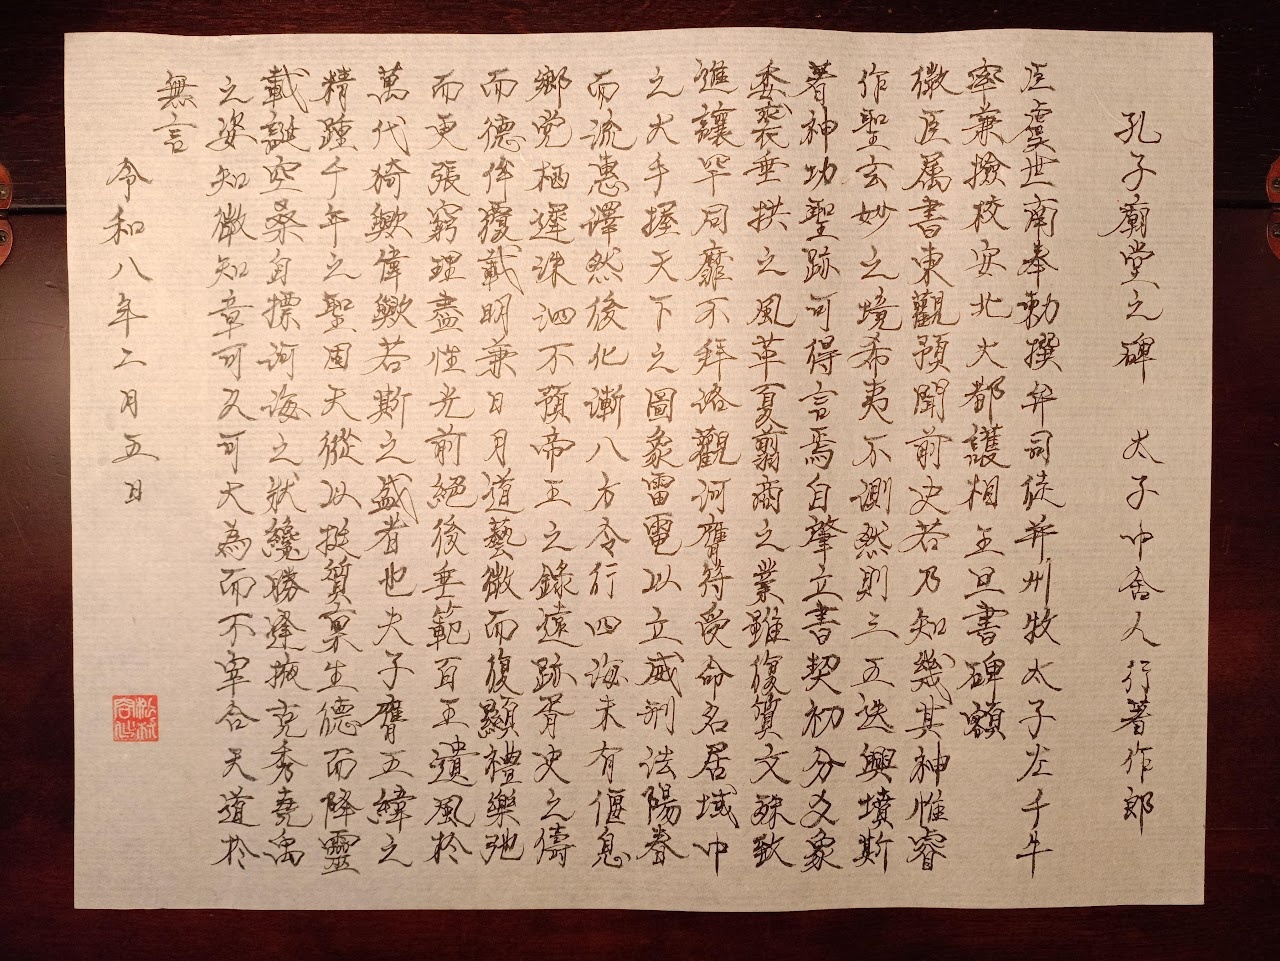 孔子廟堂之碑　太子中舍人行著作郎
臣虞世南奉勅撰并司徒并州牧太子左千牛
率兼撿挍安北大都護相王旦書碑額
微臣属書東觀預聞前史若乃知幾其神惟睿
作聖玄妙之境希夷不測然則三五迭興墳斯
著神功聖跡可得言焉自肇立書契初分爻象
委裘垂拱之風革夏翦商之業雖復質文殊致
進讓罕同靡不拜洛觀河膺符受命名居域中
之大手握天下之圖象雷電以立威刑法陽春
而流惠澤然後化漸八方令行四海未有偃息
鄉党栖遲洙泗不預帝王之錄遠跡胥史之儔
而德侔覆載明兼日月道藝微而復顯禮樂弛
而更張窮理盡性光前絕後垂範百王遺風於
萬代猗歟偉歟若斯之盛者也夫子膺五緯之
精踵千年之聖固天縱以挺質稟生德而降靈
載誕空桑自摽河海之狀纔勝逢掖克秀堯禹
之姿知微知章可久可大為而不宰合天道於
無言
令和八年二月五日